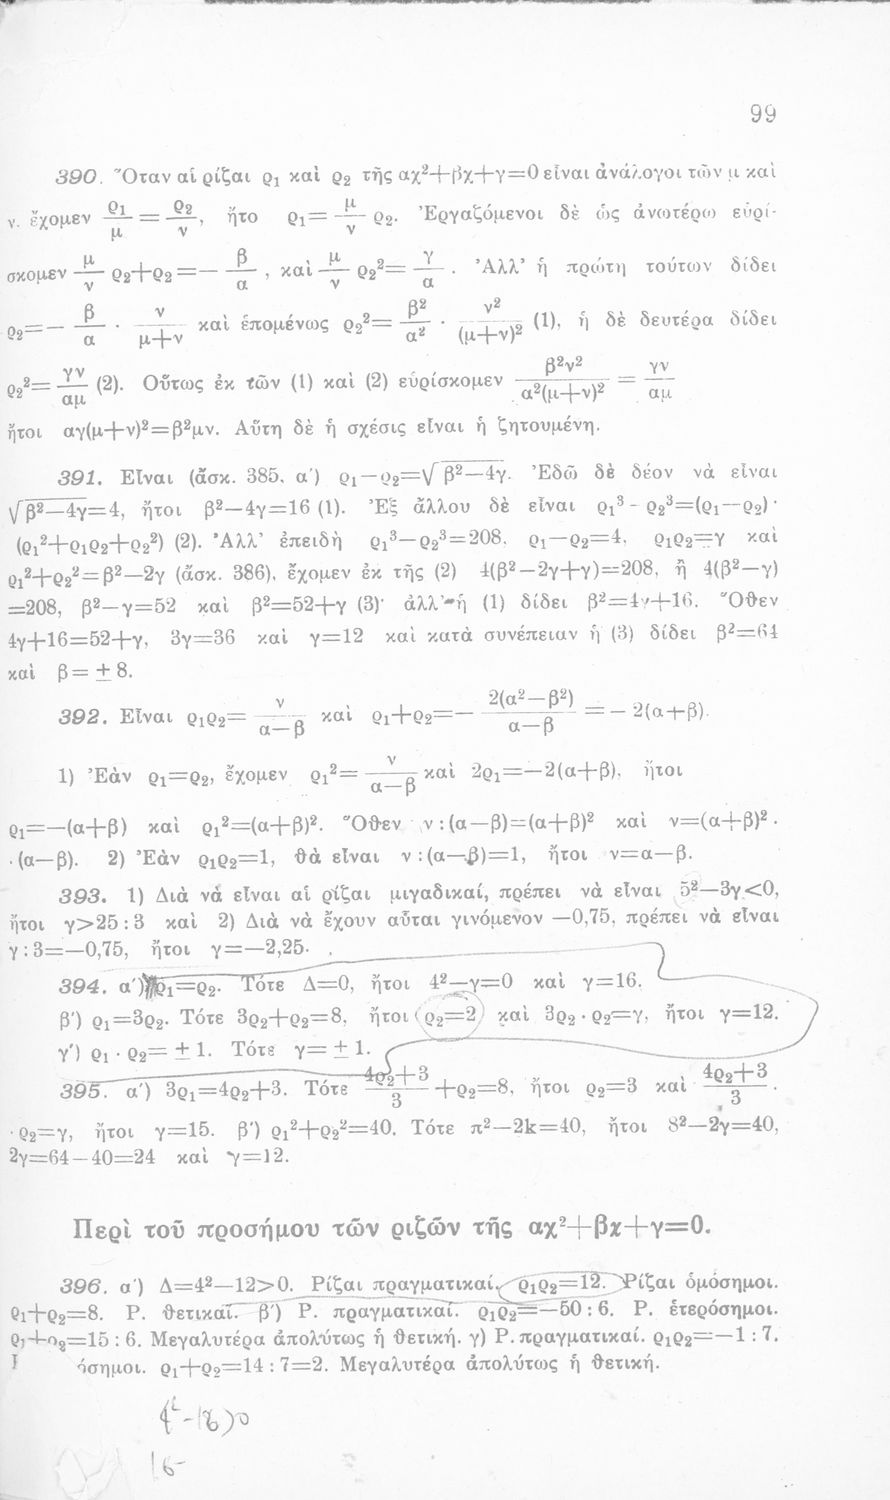 99
390. Ὅταν αἱ ρίζαι ϱ₁ καὶ ϱ₂ τῆς αχ²+βχ+γ=0 εἶναι ἀνάλογοι τῶν μ καὶ
ν. ἔχομεν ϱ₁/μ = ϱ₂/ν, ἤτο ϱ₁= μ/ν ϱ₂. Ἐργαζόμενοι δὲ ὡς ἀνωτέρω εὑρί-
σκομεν μ/ν ϱ₂+ϱ₂=— β/α, καὶ μ/ν ϱ₂²= γ/α. Ἀλλ’ ἡ πρώτη τούτων δίδει
ϱ₂=— β/α · ν/(μ+ν) καὶ ἑπομένως ϱ₂²= β²/α² · ν²/(μ+ν)² (1), ἡ δὲ δευτέρα δίδει
ϱ₂²= γν/αμ (2). Οὕτως ἐκ τῶν (1) καὶ (2) εὑρίσκομεν β²ν²/α²(μ+ν)² = γν/αμ
ἤτοι αγ(μ+ν)²=β²μν. Αὕτη δὲ ἡ σχέσις εἶναι ἡ ζητουμένη.
391. Εἶναι (ἄσκ. 385, α′) ϱ₁—ϱ₂=√β²—4γ. Ἐδῶ δὲ δέον νὰ εἶναι
√β²—4γ=4, ἤτοι β²—4γ=16 (1). Ἐξ ἄλλου δὲ εἶναι ϱ₁³-ϱ₂³=(ϱ₁—ϱ₂)·
(ϱ₁²+ϱ₁ϱ₂+ϱ₂²) (2). Ἀλλ’ ἐπειδὴ ϱ₁³—ϱ₂³=208, ϱ₁—ϱ₂=4, ϱ₁ϱ₂=γ καὶ
ϱ₁²+ϱ₂²=β²—2γ (ἄσκ. 386), ἔχομεν ἐκ τῆς (2) 4(β²—2γ+γ)=208, ἢ 4(β²—γ)
=208, β²—γ=52 καὶ β²=52+γ (3)· ἀλλ’ ἡ (1) δίδει β²=4γ+16. Ὅθεν
4γ+16=52+γ, 3γ=36 καὶ γ=12 καὶ κατὰ συνέπειαν ἡ (3) δίδει β²=64
καὶ β=±8.
392. Εἶναι ϱ₁ϱ₂= ν/(α—β) καὶ ϱ₁+ϱ₂=— 2(α²—β²)/(α—β) =—2(α+β).
1) Ἐὰν ϱ₁=ϱ₂, ἔχομεν ϱ₁²= ν/(α—β) καὶ 2ϱ₁=—2(α+β), ἤτοι
ϱ₁=—(α+β) καὶ ϱ₁²=(α+β)². Ὅθεν ν:(α—β)=(α+β)² καὶ ν=(α+β)²·
·(α—β). 2) Ἐὰν ϱ₁ϱ₂=1, θὰ εἶναι ν:(α—β)=1, ἤτοι ν=α—β.
393. 1) Διὰ νὰ εἶναι αἱ ρίζαι μιγαδικαί, πρέπει νὰ εἶναι 5²—3γ<0,
ἤτοι γ>25:3 καὶ 2) Διὰ νὰ ἔχουν αὗται γινόμενον —0,75, πρέπει νὰ εἶναι
γ:3=—0,75, ἤτοι γ=—2,25.
394. α′) ϱ₁=ϱ₂. Τότε Δ=0, ἤτοι 4²—γ=0 καὶ γ=16.
β′) ϱ₁=3ϱ₂. Τότε 3ϱ₂+ϱ₂=8, ἤτοι ϱ₂=2 καὶ 3ϱ₂·ϱ₂=γ, ἤτοι γ=12.
γ′) ϱ₁·ϱ₂=±1. Τότε γ=±1.
395. α′) 3ϱ₁=4ϱ₂+3. Τότε (4ϱ₂+3)/3 +ϱ₂=8, ἤτοι ϱ₂=3 καὶ (4ϱ₂+3)/3 ·
·ϱ₂=γ, ἤτοι γ=15. β′) ϱ₁²+ϱ₂²=40. Τότε π²—2k=40, ἤτοι 8²—2γ=40,
2γ=64—40=24 καὶ γ=12.
Περὶ τοῦ προσήμου τῶν ριζῶν τῆς αχ²+βχ+γ=0.
396. α′) Δ=4²—12>0. Ρίζαι πραγματικαί. ϱ₁ϱ₂=12. Ρίζαι ὁμόσημοι.
ϱ₁+ϱ₂=8. Ρ. θετικαί. β′) Ρ. πραγματικαί. ϱ₁ϱ₂=—50:6. Ρ. ἑτερόσημοι.
ϱ₁+ϱ₂=15:6. Μεγαλυτέρα ἀπολύτως ἡ θετική. γ) Ρ. πραγματικαί. ϱ₁ϱ₂=—1:7.
όσημοι. ϱ₁+ϱ₂=14:7=2. Μεγαλυτέρα ἀπολύτως ἡ θετική.
16-